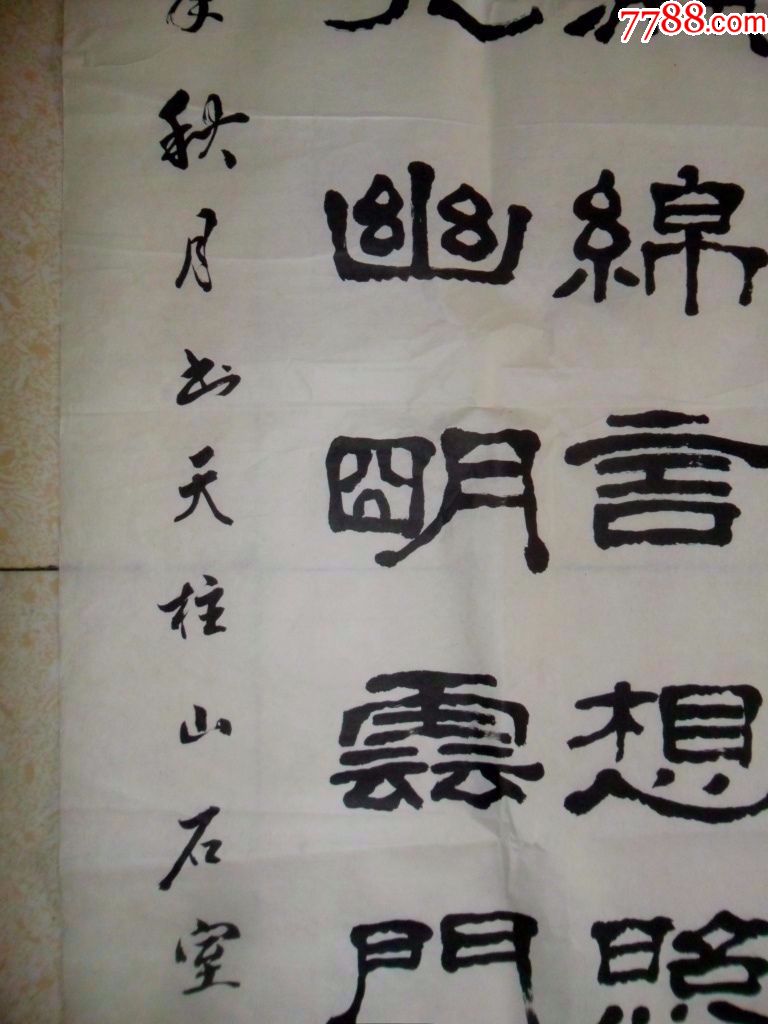 7788.com
綿言想照
幽明雲門
秋月书天柱山石室